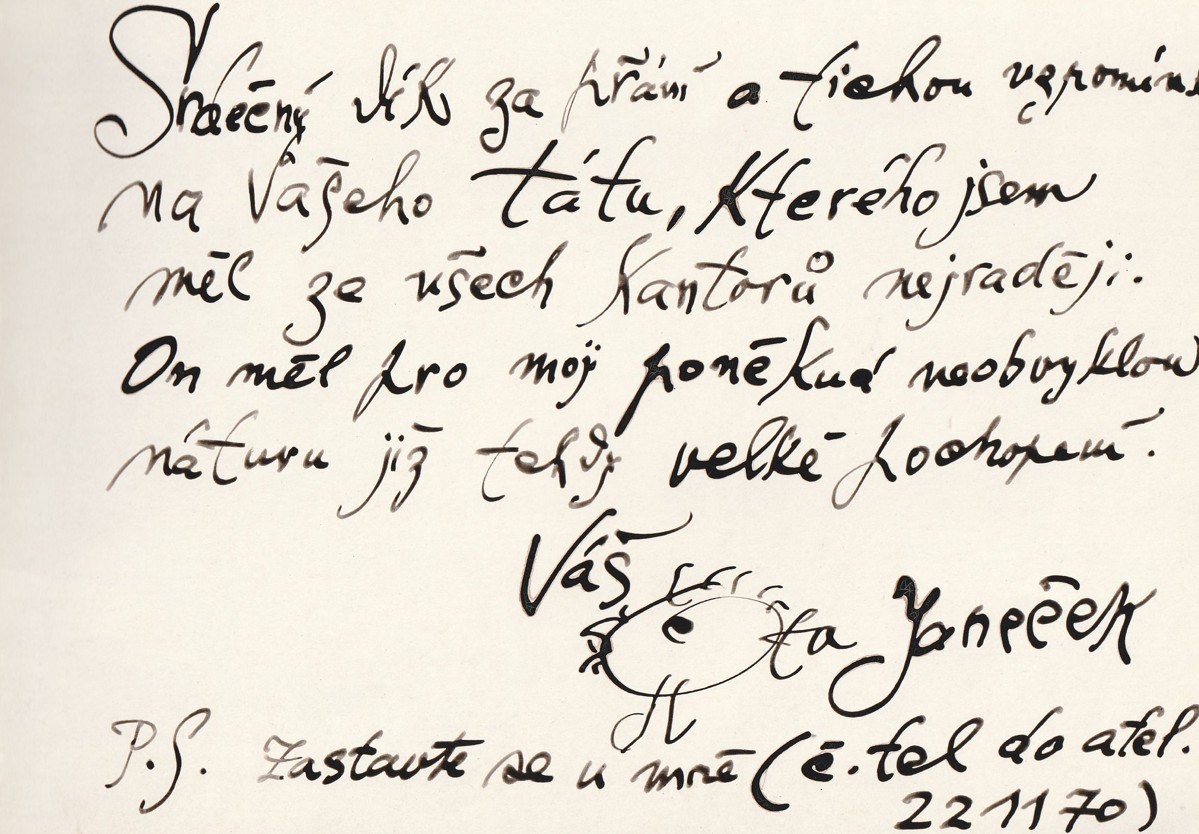 Srdečný dík za přání a tichou vzpomínk
na Vašeho tátu, kterého jsem
měl ze všech kantorů nejraději.
On měl pro moji poněkud neobvyklou
náturu již tehdy velké pochopení.
Váš
Ota Janeček
P.S. Zastavte se u mně (č. tel do atel.
22 11 70)